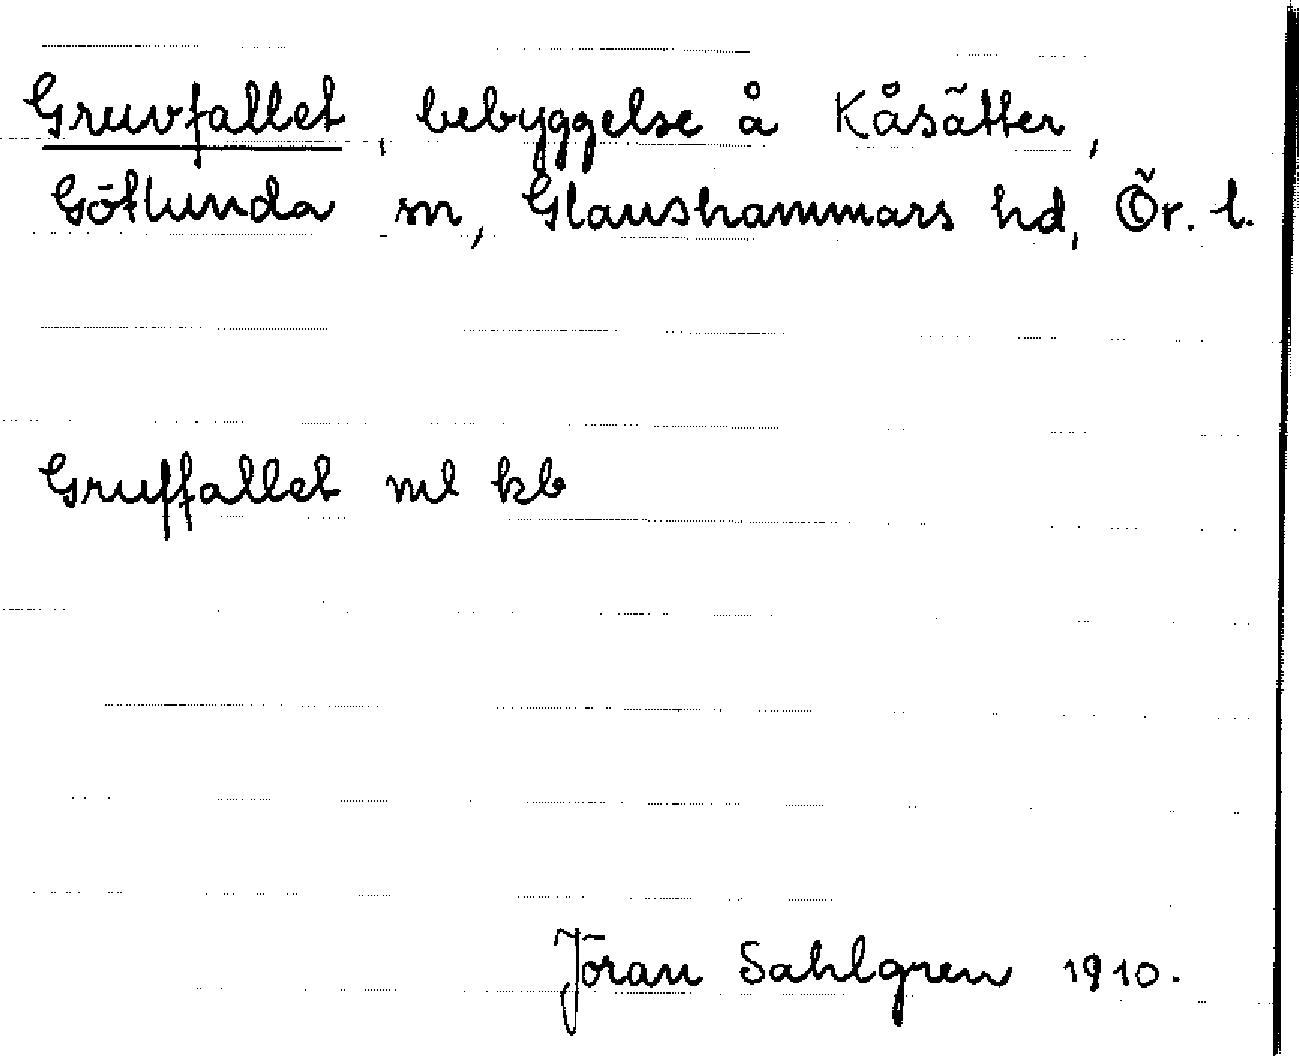 Gruvfallet, bebyggelse å Kåsätter,
Götlunda sn, Glanshammars hd, Ör. l.
Gruffallet ml kb
Jöran Sahlgren 1910.